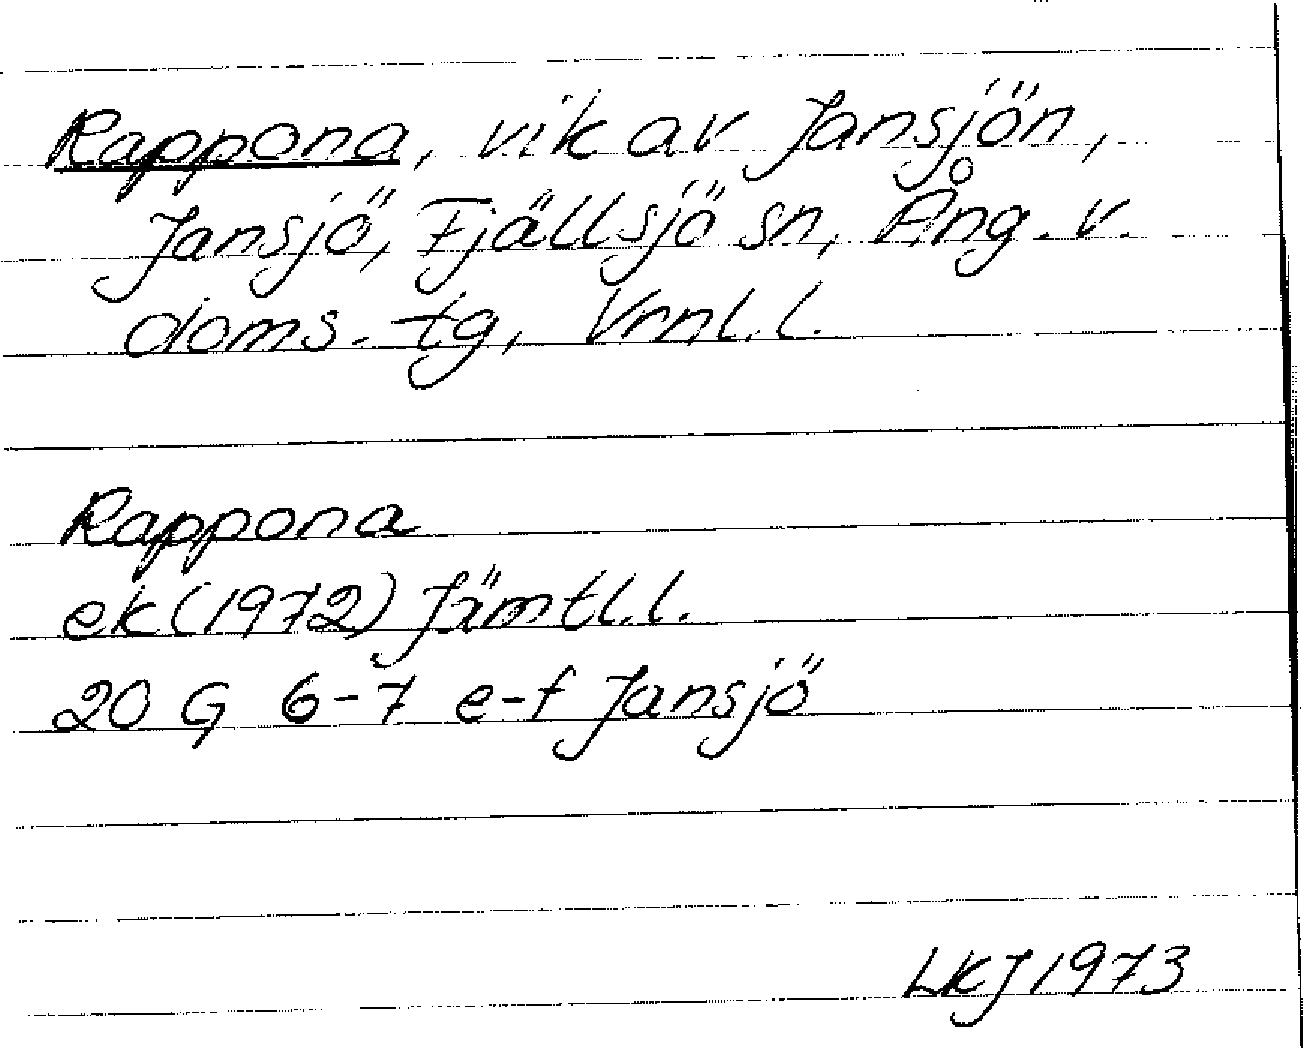 Rappona, vik av Jansjön,
Jansjö, Fjällsjö sn, Ång. v.
doms. tg, Vrnl. l.
Rappona
ek (1972) Jämtl. l.
20 G 6-7 e-f Jansjö
LKJ 1973